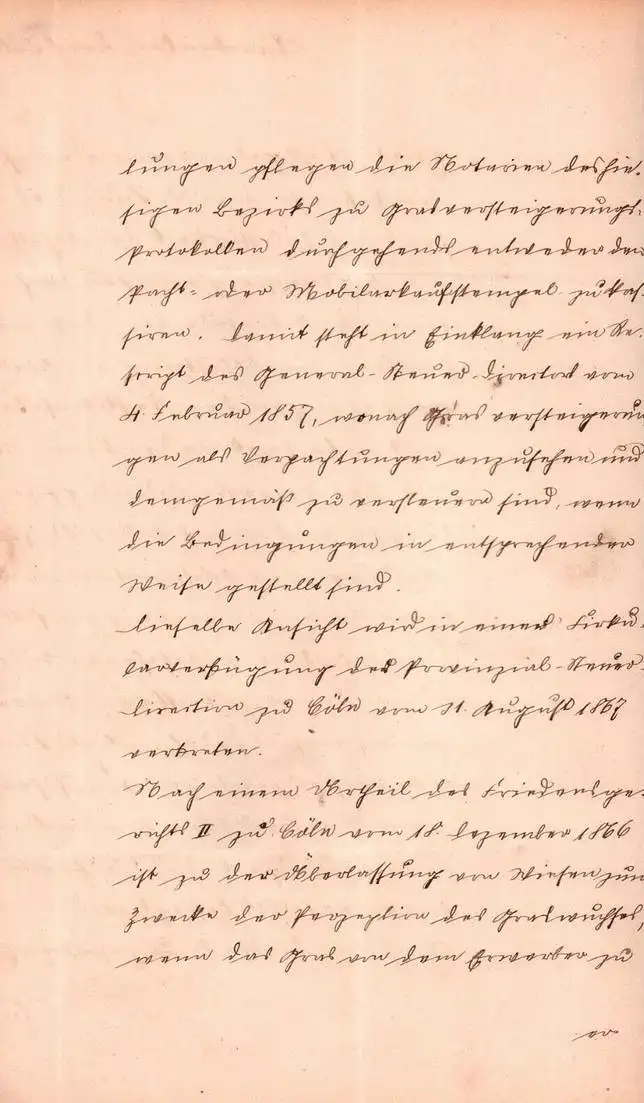 lungen pflegen die Notarien des hie-
sigen Bezirks zu Grasversteigerungs-
protokollen durchgehends entweder den
Pacht- oder Mobilarkaufstempel zu kas-
siren. Damit steht in Einklang ein Re-
script des General-Steuer-Directors vom
4. Februar 1857, wonach Grasversteigerun
gen als Verpachtungen anzusehen und
demgemäß zu versteuern sind, wenn
die Bedingungen in entsprechender
Weise gestellt sind.
Dieselbe Ansicht wird in einer Cirku-
larverfügung der Provinzial-Steuer-
Direction zu Cöln vom 31. August 1867
vertreten.
Nach einem Urtheil des Friedensge-
richts II zu Cöln vom 18. Dezember 1866
ist zu der Überlassung von Wiesen zum
Zwecke der Perzeption des Graswuchses,
wenn das Gras von dem Erwerber zu